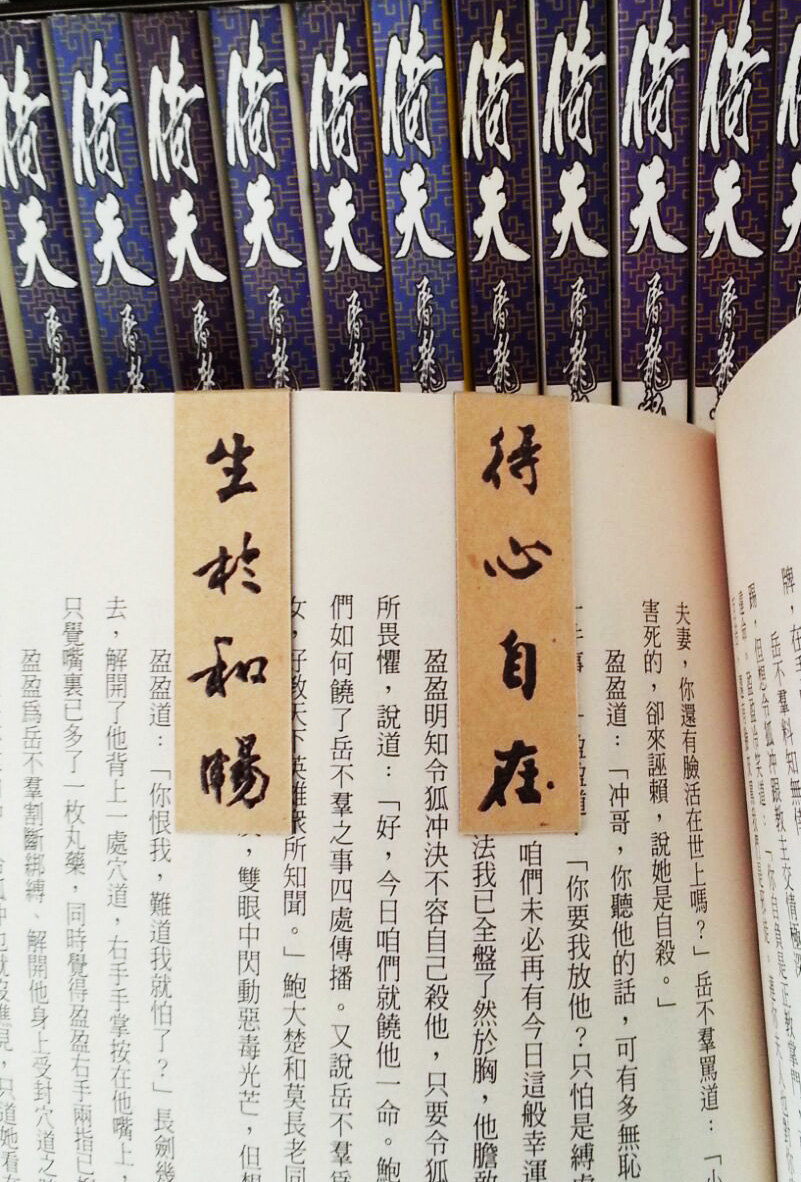 倚天屠龍
倚天屠龍
倚天屠龍
倚天屠龍
倚天屠龍
倚天屠龍
倚天屠龍
倚天屠龍
倚天屠龍記
倚天屠龍記
得心自在
生於和暢
牌，在手
岳不羣料知無倖
踢，但想令狐冲跟教主交情極深
夫妻，你還有臉活在世上嗎？」岳不羣罵道：「小
害死的，卻來誣賴，說她是自殺。」
盈盈道：「冲哥，你聽他的話，可有多無恥
「你要我放他？只怕是縛虎
咱們未必再有今日這般幸運
法我已全盤了然於胸，他膽敢
盈盈明知令狐冲決不容自己殺他，只要令狐
所畏懼，說道：「好，今日咱們就饒他一命。鮑
們如何饒了岳不羣之事四處傳播。又說岳不羣爲
女，好教天下英雄衆所知聞。」鮑大楚和莫長老同
，雙眼中閃動惡毒光芒，但想
盈盈道：「你恨我，難道我就怕了？」長劍幾
去，解開了他背上一處穴道，右手手掌按在他嘴上，
只覺嘴裏已多了一枚丸藥，同時覺得盈盈右手兩指已
盈盈爲岳不羣割斷綁縛、解開他身上受封穴道之
也就沒瞧見，只道她看在